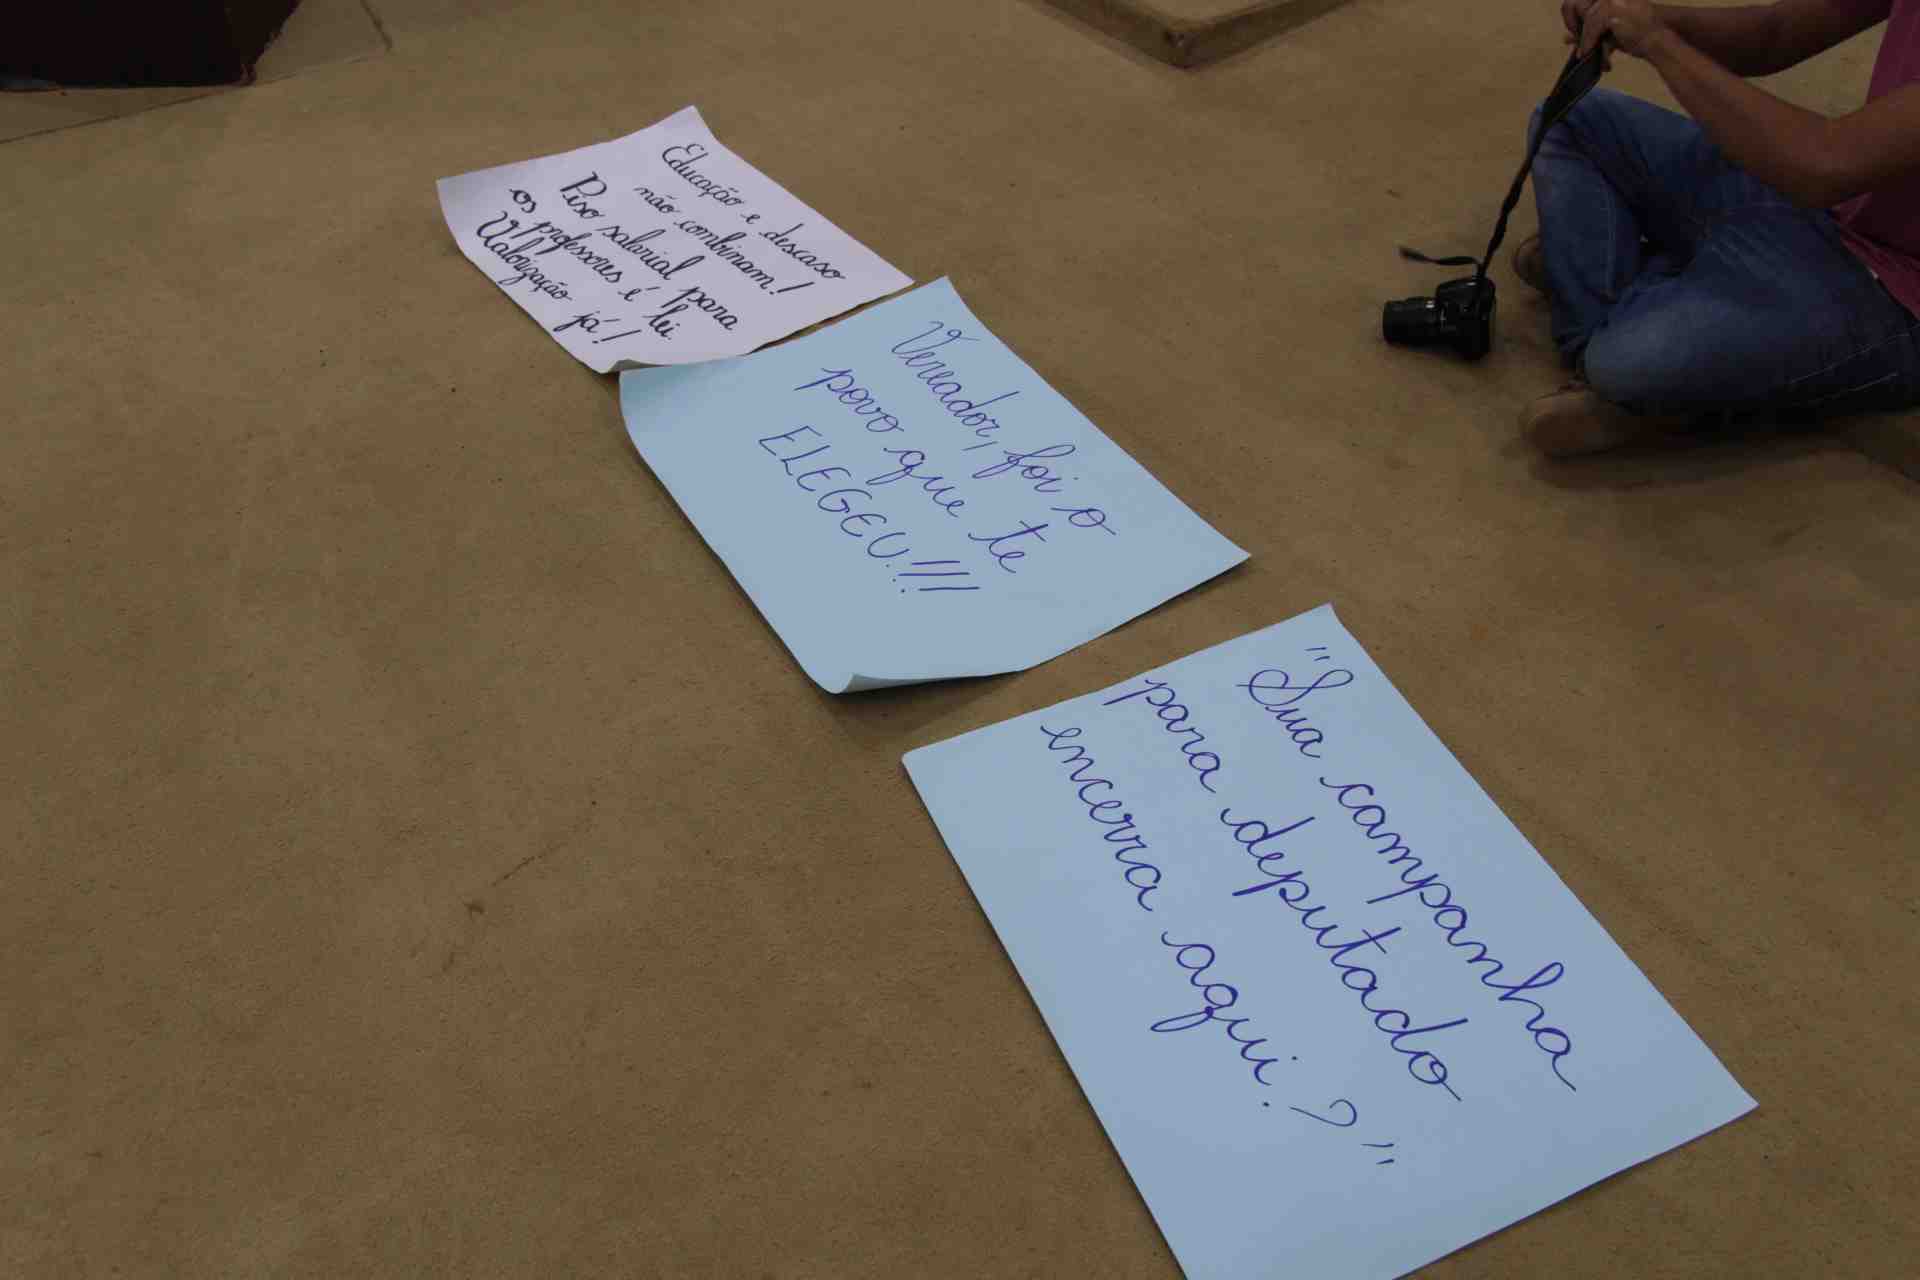 Educação e descaso
não combinam!
Piso salarial para
os professores é lei.
Valorização já!
Vereador, foi o
povo que te
ELEGEU!!!!
"Sua campanha
para deputado
encerra aqui.?"